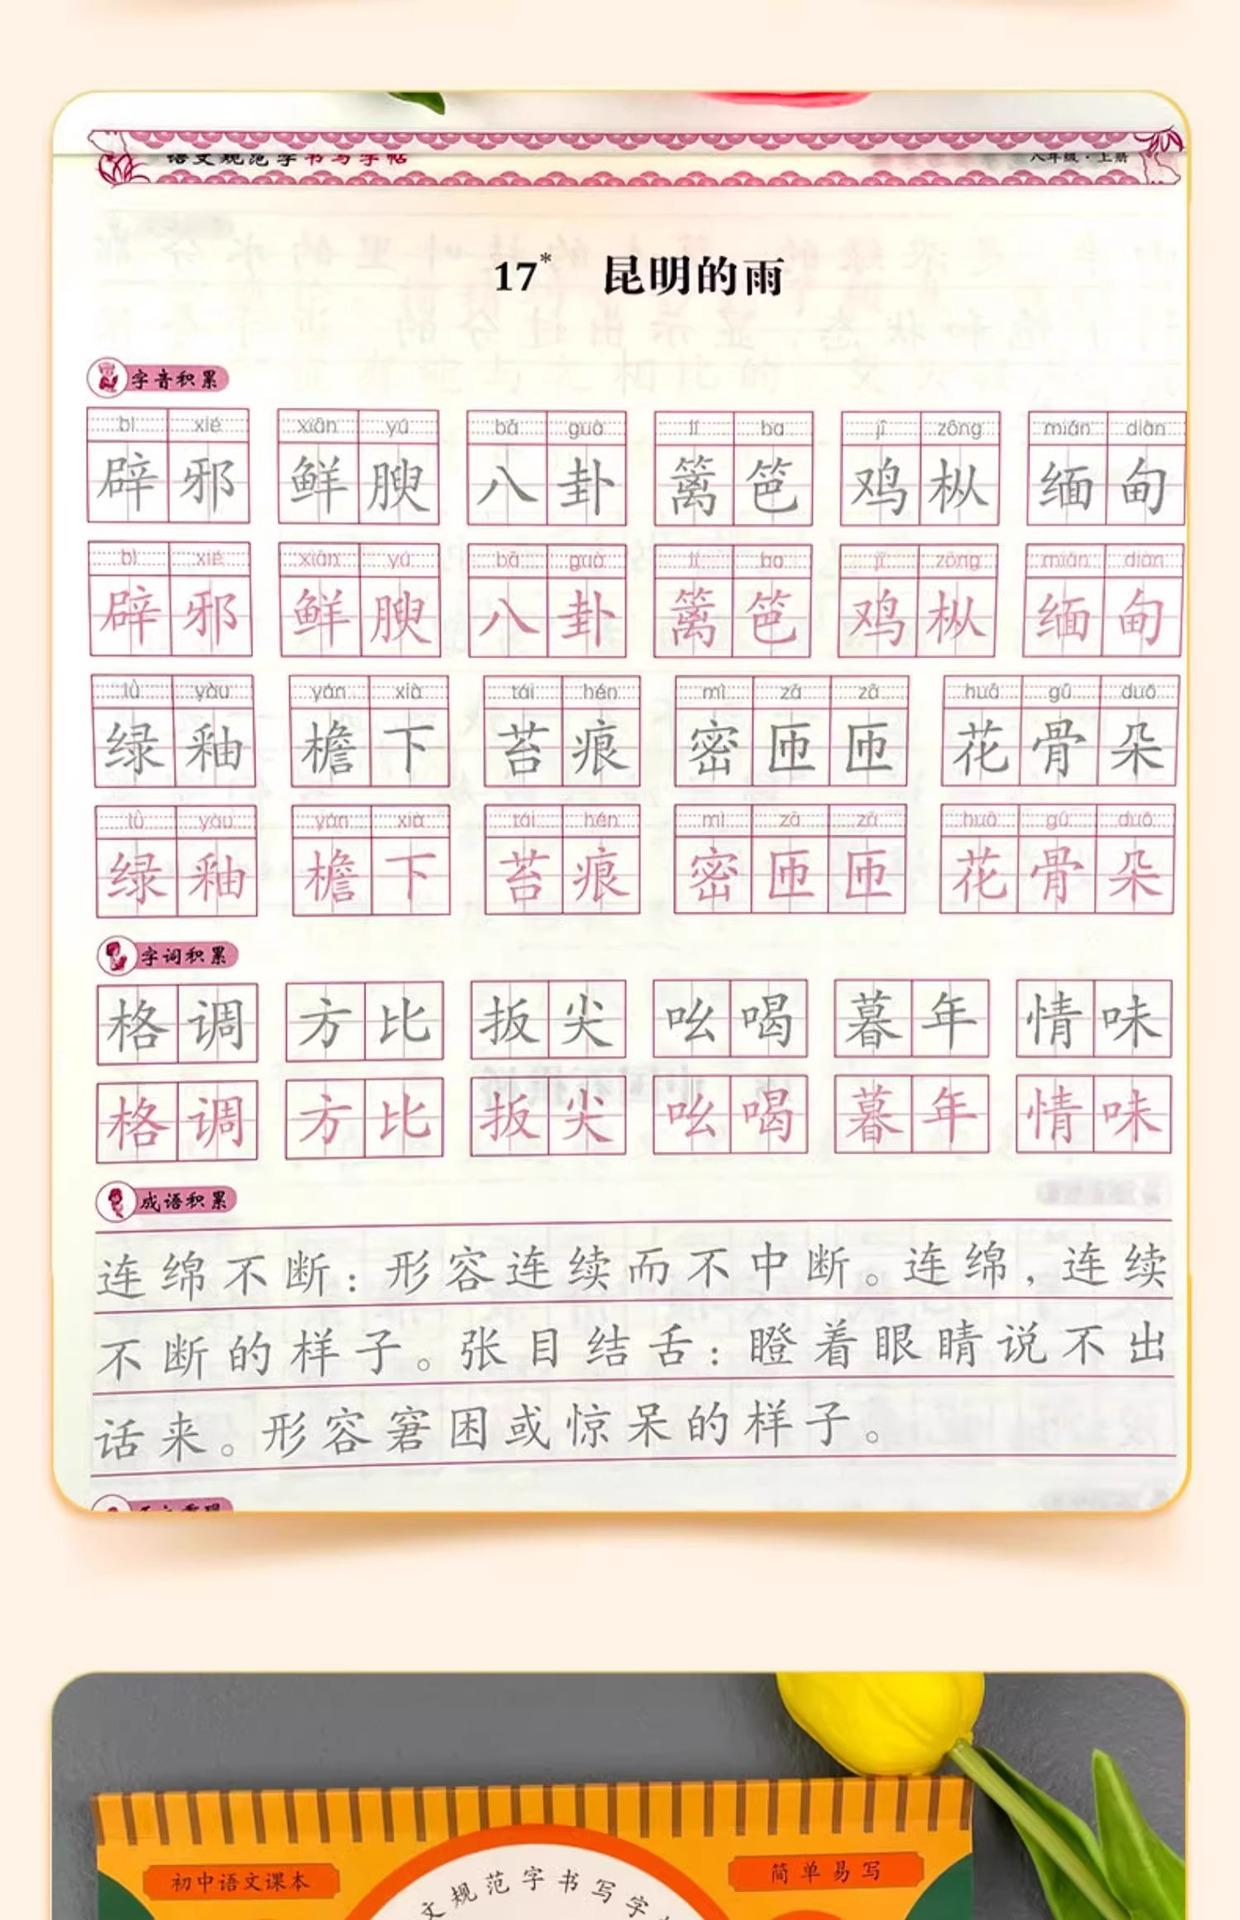 语文规范字书写字帖 八年级·上册
17* 昆明的雨
字音积累
bì xié xiān yú bā guà lí ba jī zōng miǎn diàn
辟邪 鲜腴 八卦 篱笆 鸡枞 缅甸
bì xié xiān yú bā guà lí ba jī zōng miǎn diàn
辟邪 鲜腴 八卦 篱笆 鸡枞 缅甸
lǜ yòu yán xià tái hén mì zā zā huā gū duǒ
绿釉 檐下 苔痕 密匝匝 花骨朵
lǜ yòu yán xià tái hén mì zā zā huā gū duǒ
绿釉 檐下 苔痕 密匝匝 花骨朵
字词积累
格调 方比 扳尖 吆喝 暮年 情味
格调 方比 扳尖 吆喝 暮年 情味
成语积累
连绵不断：形容连续而不中断。连绵，连续
不断的样子。张目结舌：瞪着眼睛说不出
话来。形容窘困或惊呆的样子。
初中语文课本
简单易写
文规范字书写字